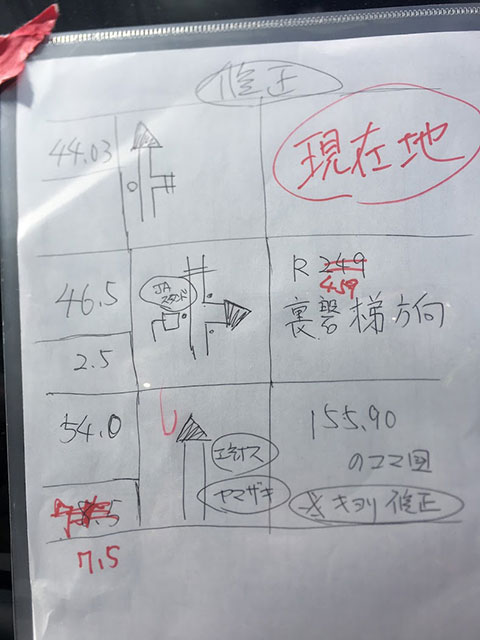 修正
44.03
現在地
46.5
JA
スタンド
R 249
459
裏磐梯方向
2.5
54.0
エネオス
ヤマザキ
155.90
のコマ図
※キョリ修正
7.5